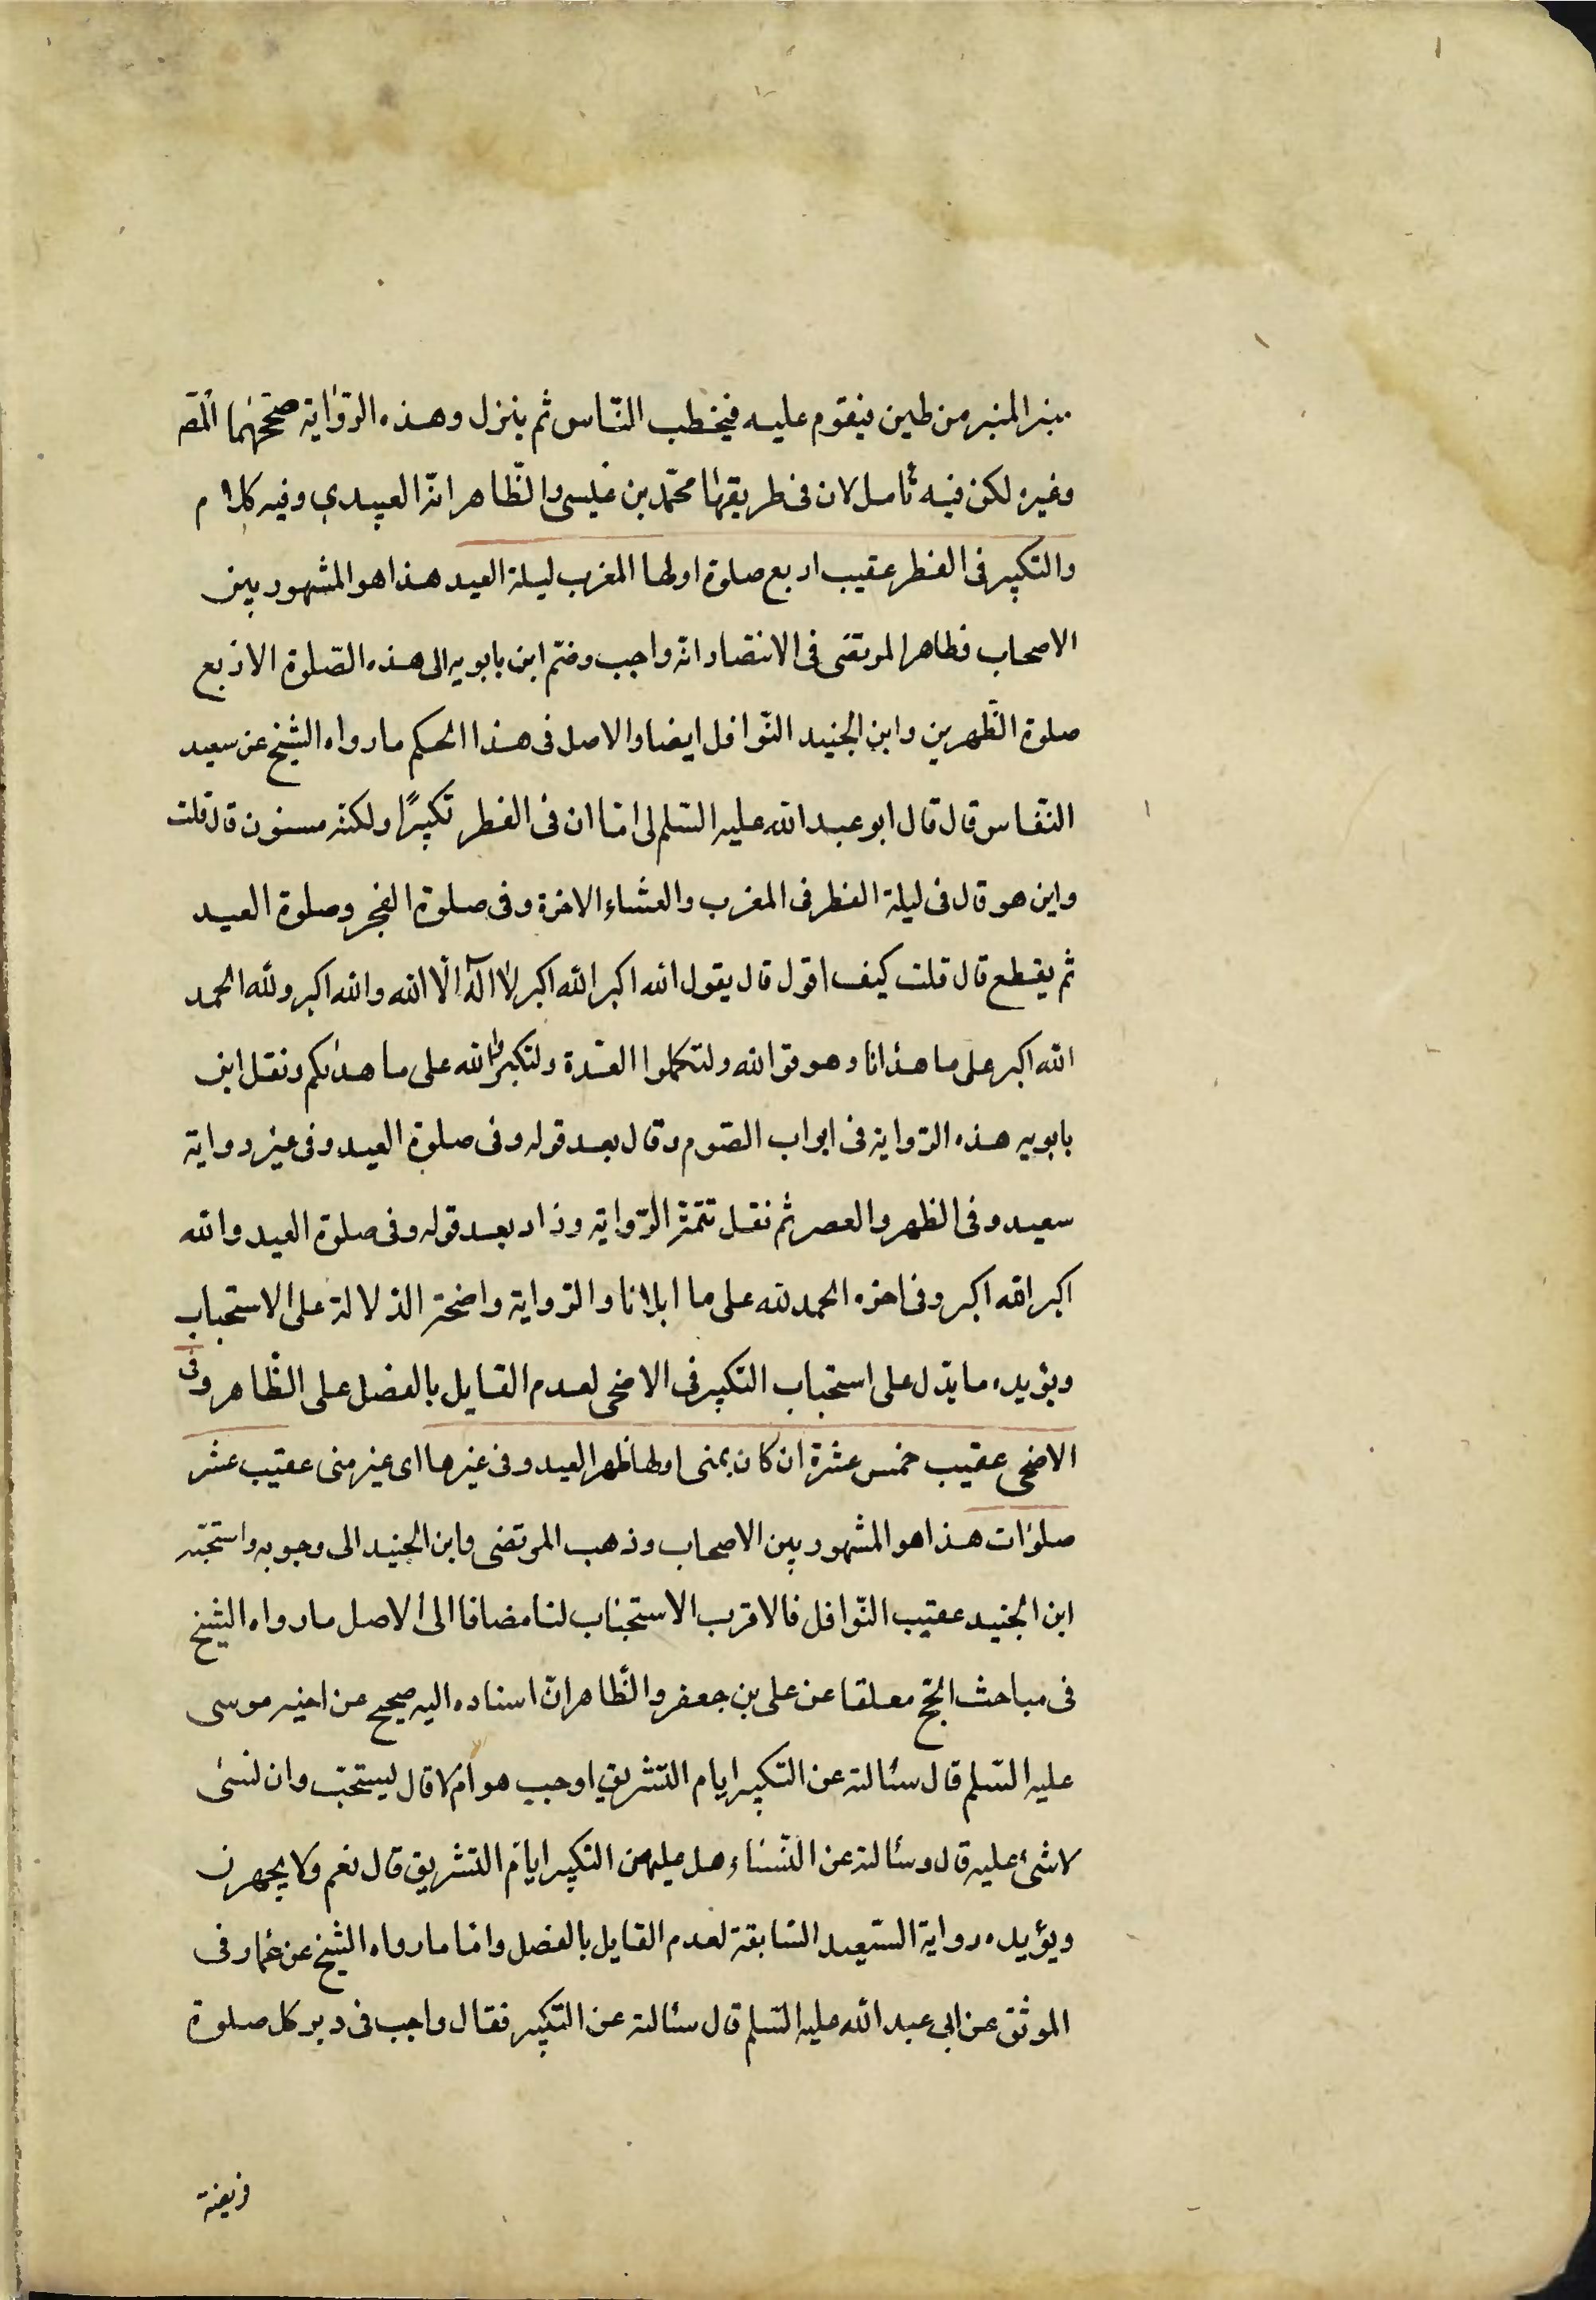 منبر المنبر من طين فيقوم عليه فيخطب الناس ثم ينزل وهذه الرواية صححها المصـ
وغيره لكن فيه تأمل لان فى طريقها محمّد بن عيسى والظّاهر انّه العبيدي وفيه كلام
والتكبير فى الفطر عقيب اربع صلوة اولها المغرب ليلة العيد هذا هو المشهور بين
الاصحاب فظاهر المرتضى فى الانتصار انّه واجب وضمّ ابن بابويه الى هذه الصّلوة الاربع
صلوة الظّهرين وابن الجنيد النّوافل ايضا والاصل فى هذا الحكم ما رواه الشيخ عن سعيد
النقّاس قال قال ابو عبد الله عليه السّلم لى امّا ان فى الفطر تكبيرًا ولكنّه مسنون قال قلت
واين هو قال فى ليلة الفطر فى المغرب والعشاء الاخرة وفى صلوة الفجر وصلوة العيد
ثم يقطع قال قلت كيف اقول قال يقول الله اكبر الله اكبر لا اله الّا الله والله اكبر ولله الحمد
الله اكبر على ما هدانا وهو قو الله ولتكملوا العدّة ولتكبّروا الله على ما هديكم ونقل ابن
بابويه هذه الرّواية فى ابواب الصّوم وقال بعد قوله وفى صلوة العيد وفى غير رواية
سعيد وفى الظهر والعصر ثم نقل تتمّة الرّواية وزاد بعد قوله وفى صلوة العيد والله
اكبر الله اكبر وفى اخره الحمد لله على ما ابلانا والرّواية واضحة الدّلالة على الاستحباب
ويؤيده ما يدّل على استحباب التكبير فى الاضحى لعدم القايل بالفصل على الظّاهر وفى
الاضحى عقيب خمس عشرة ان كان بمنى اولها ظهر العيد وفى غيرها اى غير منى عقيب عشر
صلوات هذا هو المشهور بين الاصحاب وذهب المرتضى وابن الجنيد الى وجوبه واستحبّه
ابن الجنيد عقيب النّوافل فالاقرب الاستحباب لنا مضافا الى الاصل ما رواه الشيخ
فى مباحث الحجّ معلقا عن على بن جعفر والظّاهر انّ اسناده اليه صحيح عن اخيه موسى
عليه السّلم قال سئالته عن التكبير ايام التشريق اوجب هو ام لا قال يستحبّ وان نسى
لا شئ عليه قال وسئالته عن النّساء هل عليهن التكبير ايام التشريق قال نعم ولا يجهرن
ويؤيده رواية السّعيد السّابقة لعدم القايل بالفصل وامّا ما رواه الشيخ عن عمّار فى
الموثق عن ابى عبد الله عليه السّلم قال سئالته عن التكبير فقال واجب فى دبر كل صلوة
فريضة